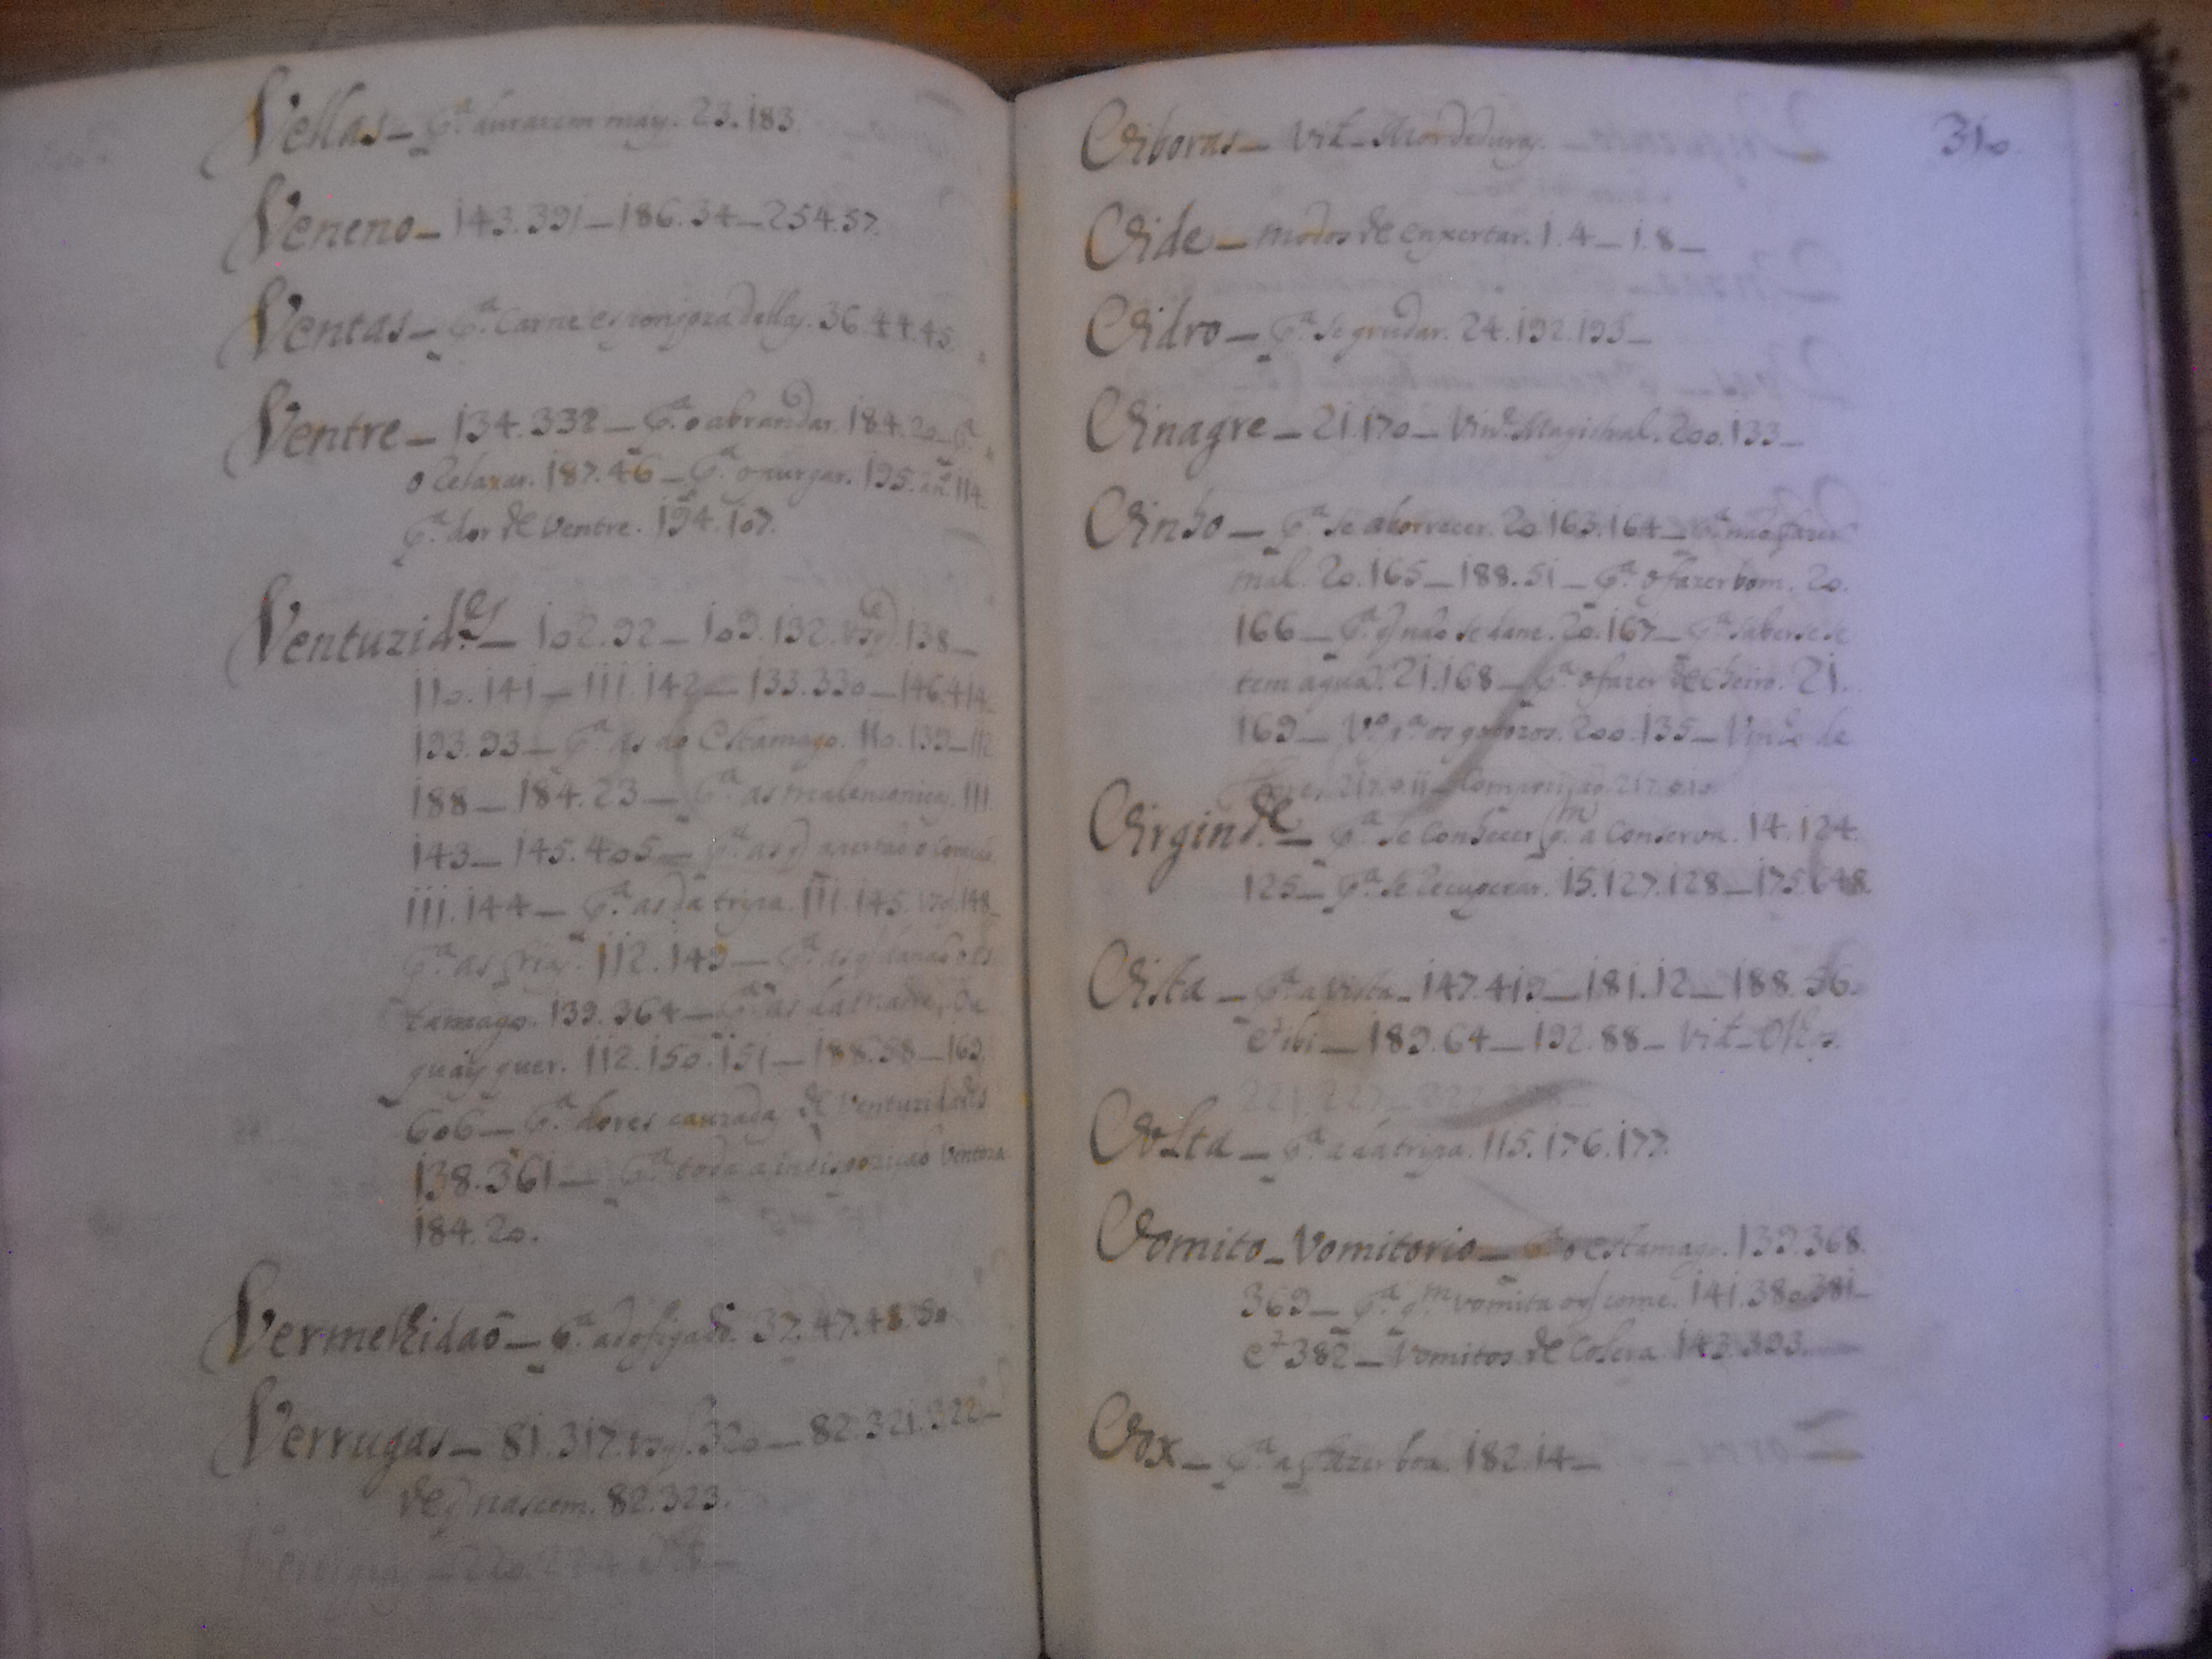 Vellas_ P.ª durarem mais. 23.183.
Veneno_ 143.391_186.34_254.57.
Ventas_ P.ª Carne esponjoza dellas. 36.44.45.
Ventre_ 134.332_ P.ª o abrandar. 184.20_P.ª
o Relaxar. 187.46_ P.ª o purgar. 195. 114_
P.ª dor de Ventre. 194.107.
Ventuzid.es_ 102.92_109.132. 138_
110.141_111.142_133.330_146.414_
193.93_ P.ª as do Estamago. 110.139_112
188_184.23_ P.ª as malenconicas. 111.
143_145.405_ P.ª as q apertaõ o
111.144_ P.ª as da tripa. 111.145. 148_
P.ª as frias. 112.149_ P.ª as q danaõ o es
tamago. 139.364_ P.ª as da madre,
quais quer. 112.150.151_188.58_169.
606_ P.ª dores cauzadas de Ventuzidades
138.361_ P.ª toda a indispoziçaõ Ventoza
184.20.
Vermelhidaõ_ P.ª a do figado. 37.47.48.50
Verrugas_ 81.317. 320_82.321.322_
de q nascem. 82.323.
220.224
310
Viboras_ Vid_ Mordeduras.
Vide_ modos de enxertar. 1.4_1.8_
Vidro_ P.ª se grudar. 24.192.193_
Vinagre_ 21.170_ Vin.e Magistral. 200.133_
Vinho_ P.ª se aborrecer. 20.163.164_ P.ª naõ fazer
mal. 20.165_188.51_ P.ª o fazer bom. 20.
166_ P.ª q naõ se dane. 20.167_ P.ª saber se se
tem agua. 21.168_ P.ª o fazer de cheiro. 21.
169_ V.o p.ª os gotozos. 200.135_ Vinho de
217. 11_ Compoziçaõ 217.
Virgind.e_ P.ª se Conhecer q.m a Conserva. 14.124.
125_ P.ª se Recuperar. 15.127.128_175.648.
Vista_ P.ª a Vista_147.419_181.12_188.56.
et ibi_189.64_192.88_ Vid_ Olhos.
221.227_222.
Volta_ P.ª a da tripa. 115.176.177.
Vomito_Vomitorio_ P.ª o estamago. 139.368.
369_ P.ª q.m vomita o q come. 141.380.381_
et 382_ Vomitos de Colera. 143.393.
Vox_ P.ª a fazer boa. 182.14_